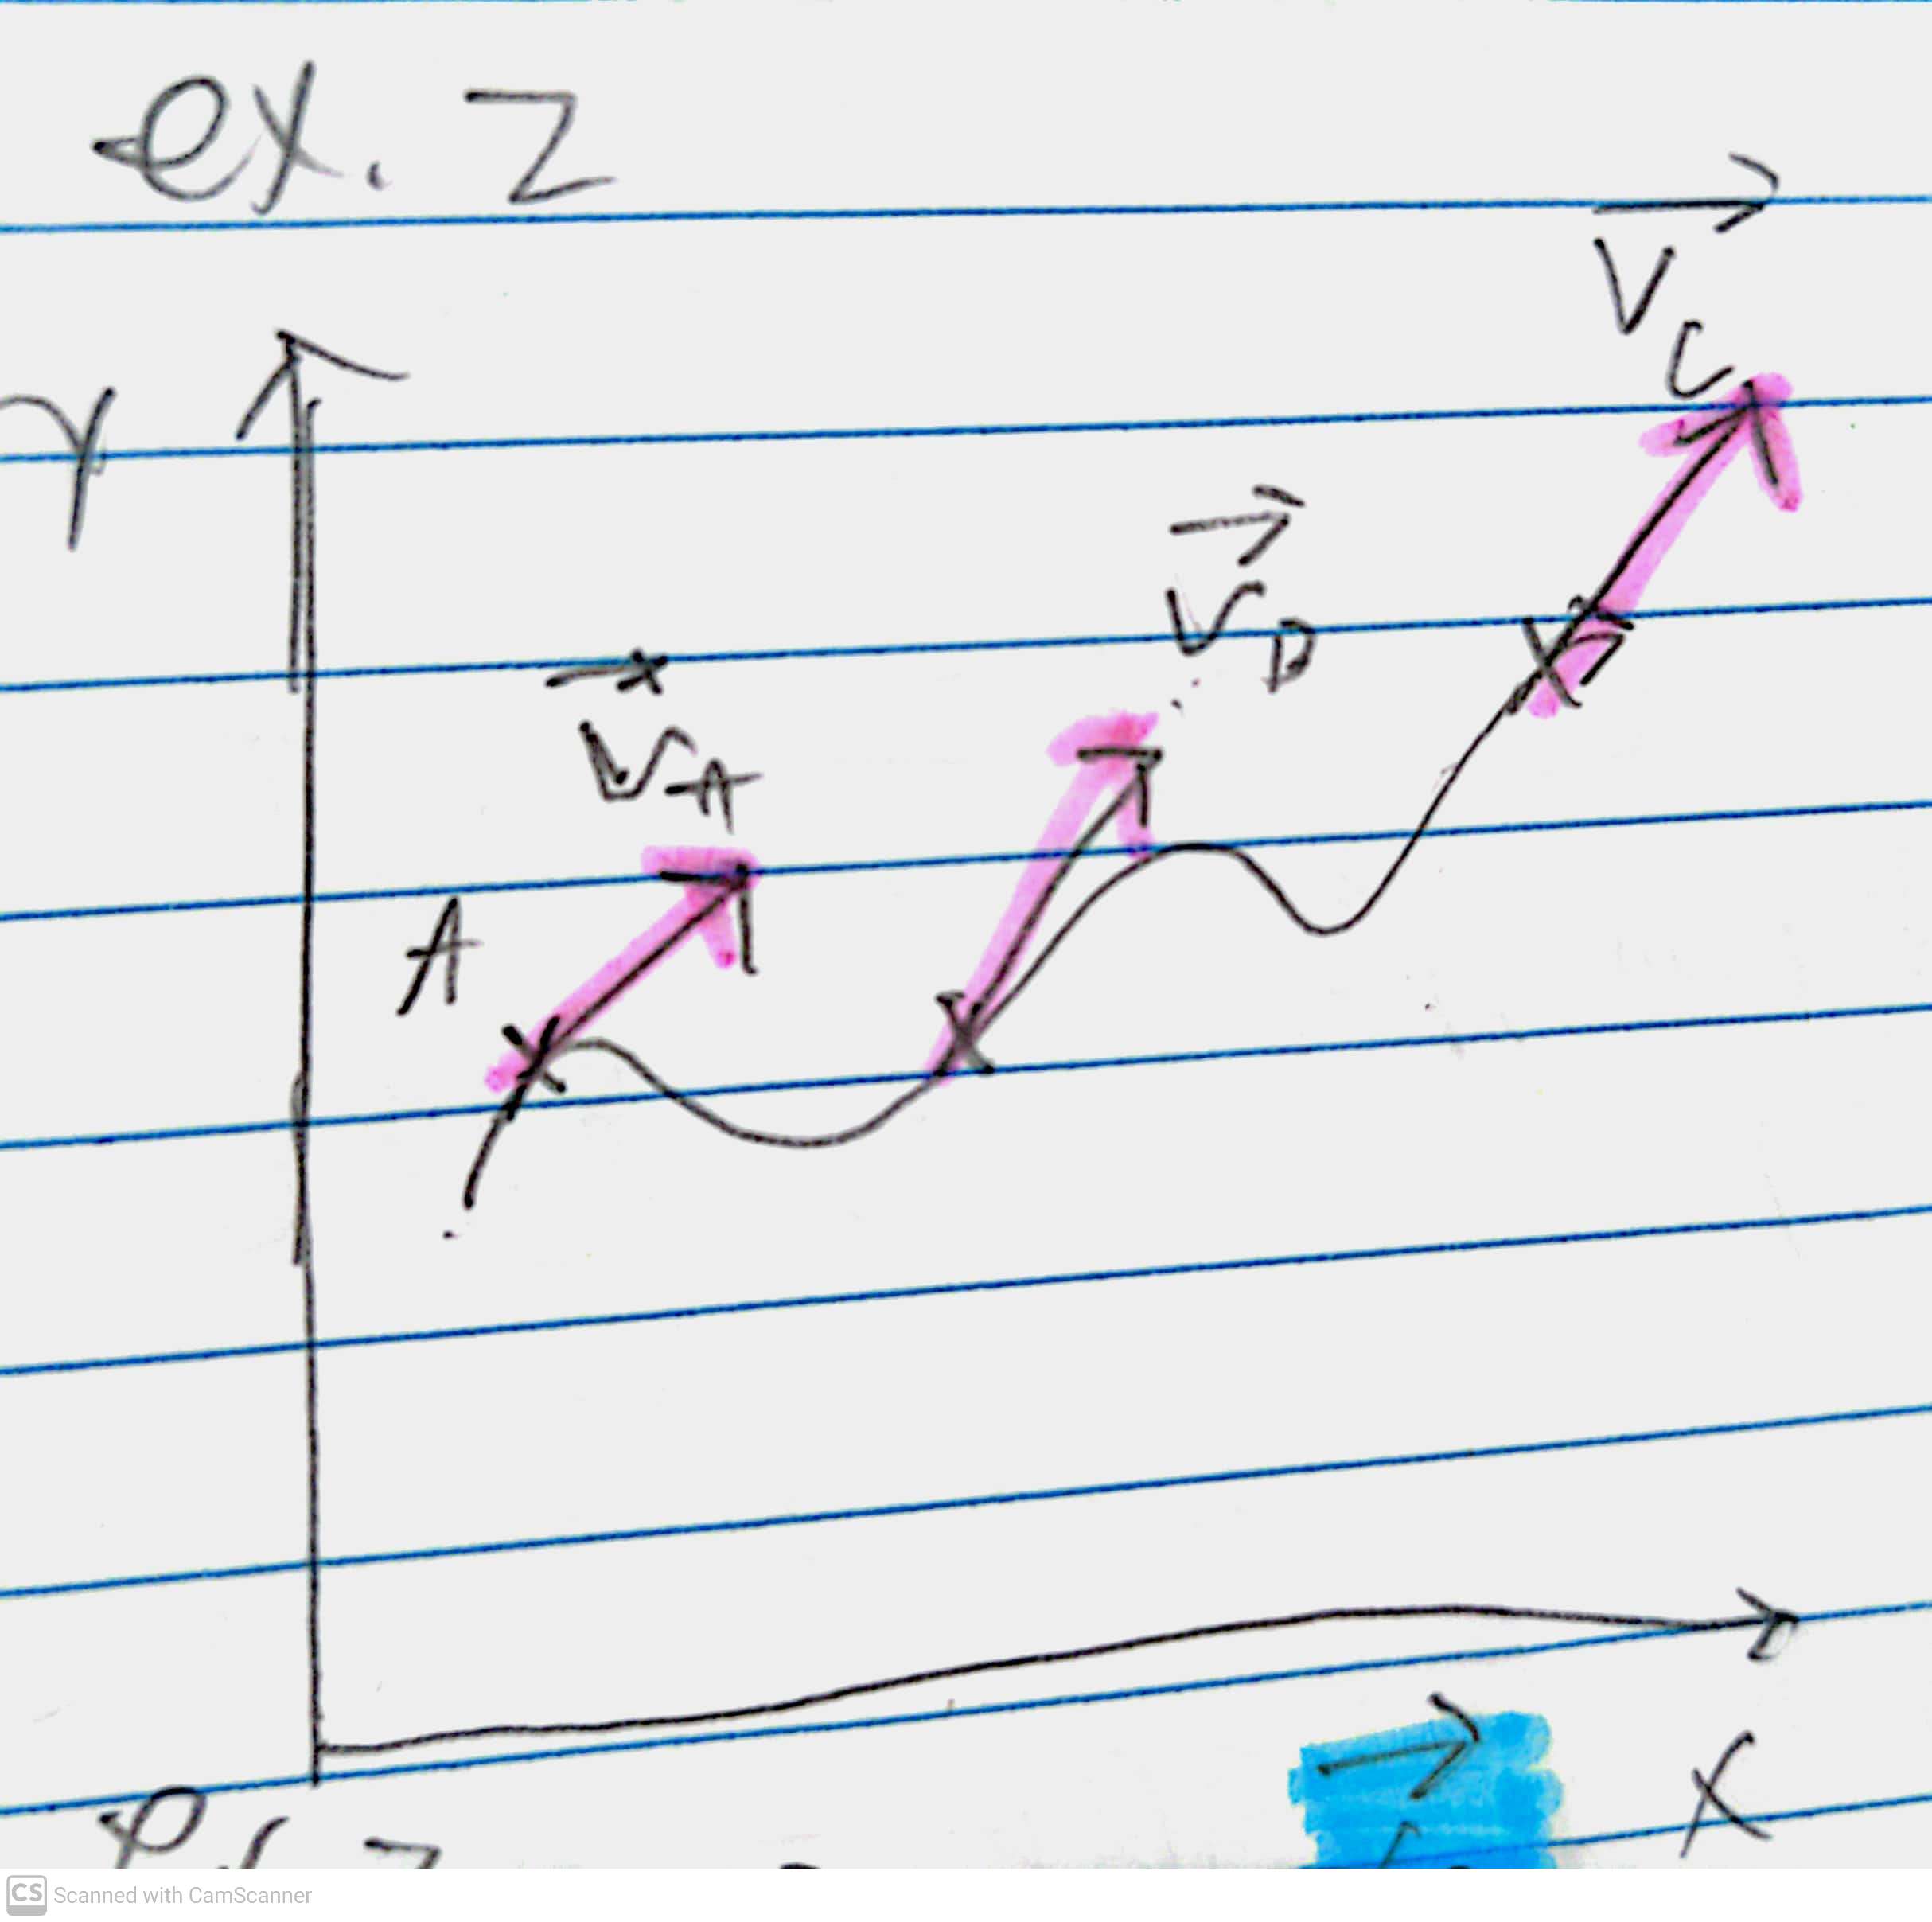 ex. 2
V⃗C
Y
V⃗B
V⃗A
A
X
CS Scanned with CamScanner